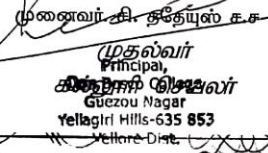 முனைவர் சி. ததேயுஸ் ச.ச
முதல்வர்
Principal,
கல்லூரி செயலர்
Guezou Nagar
Yellagiri Hills-635 853
Vellore Dist.